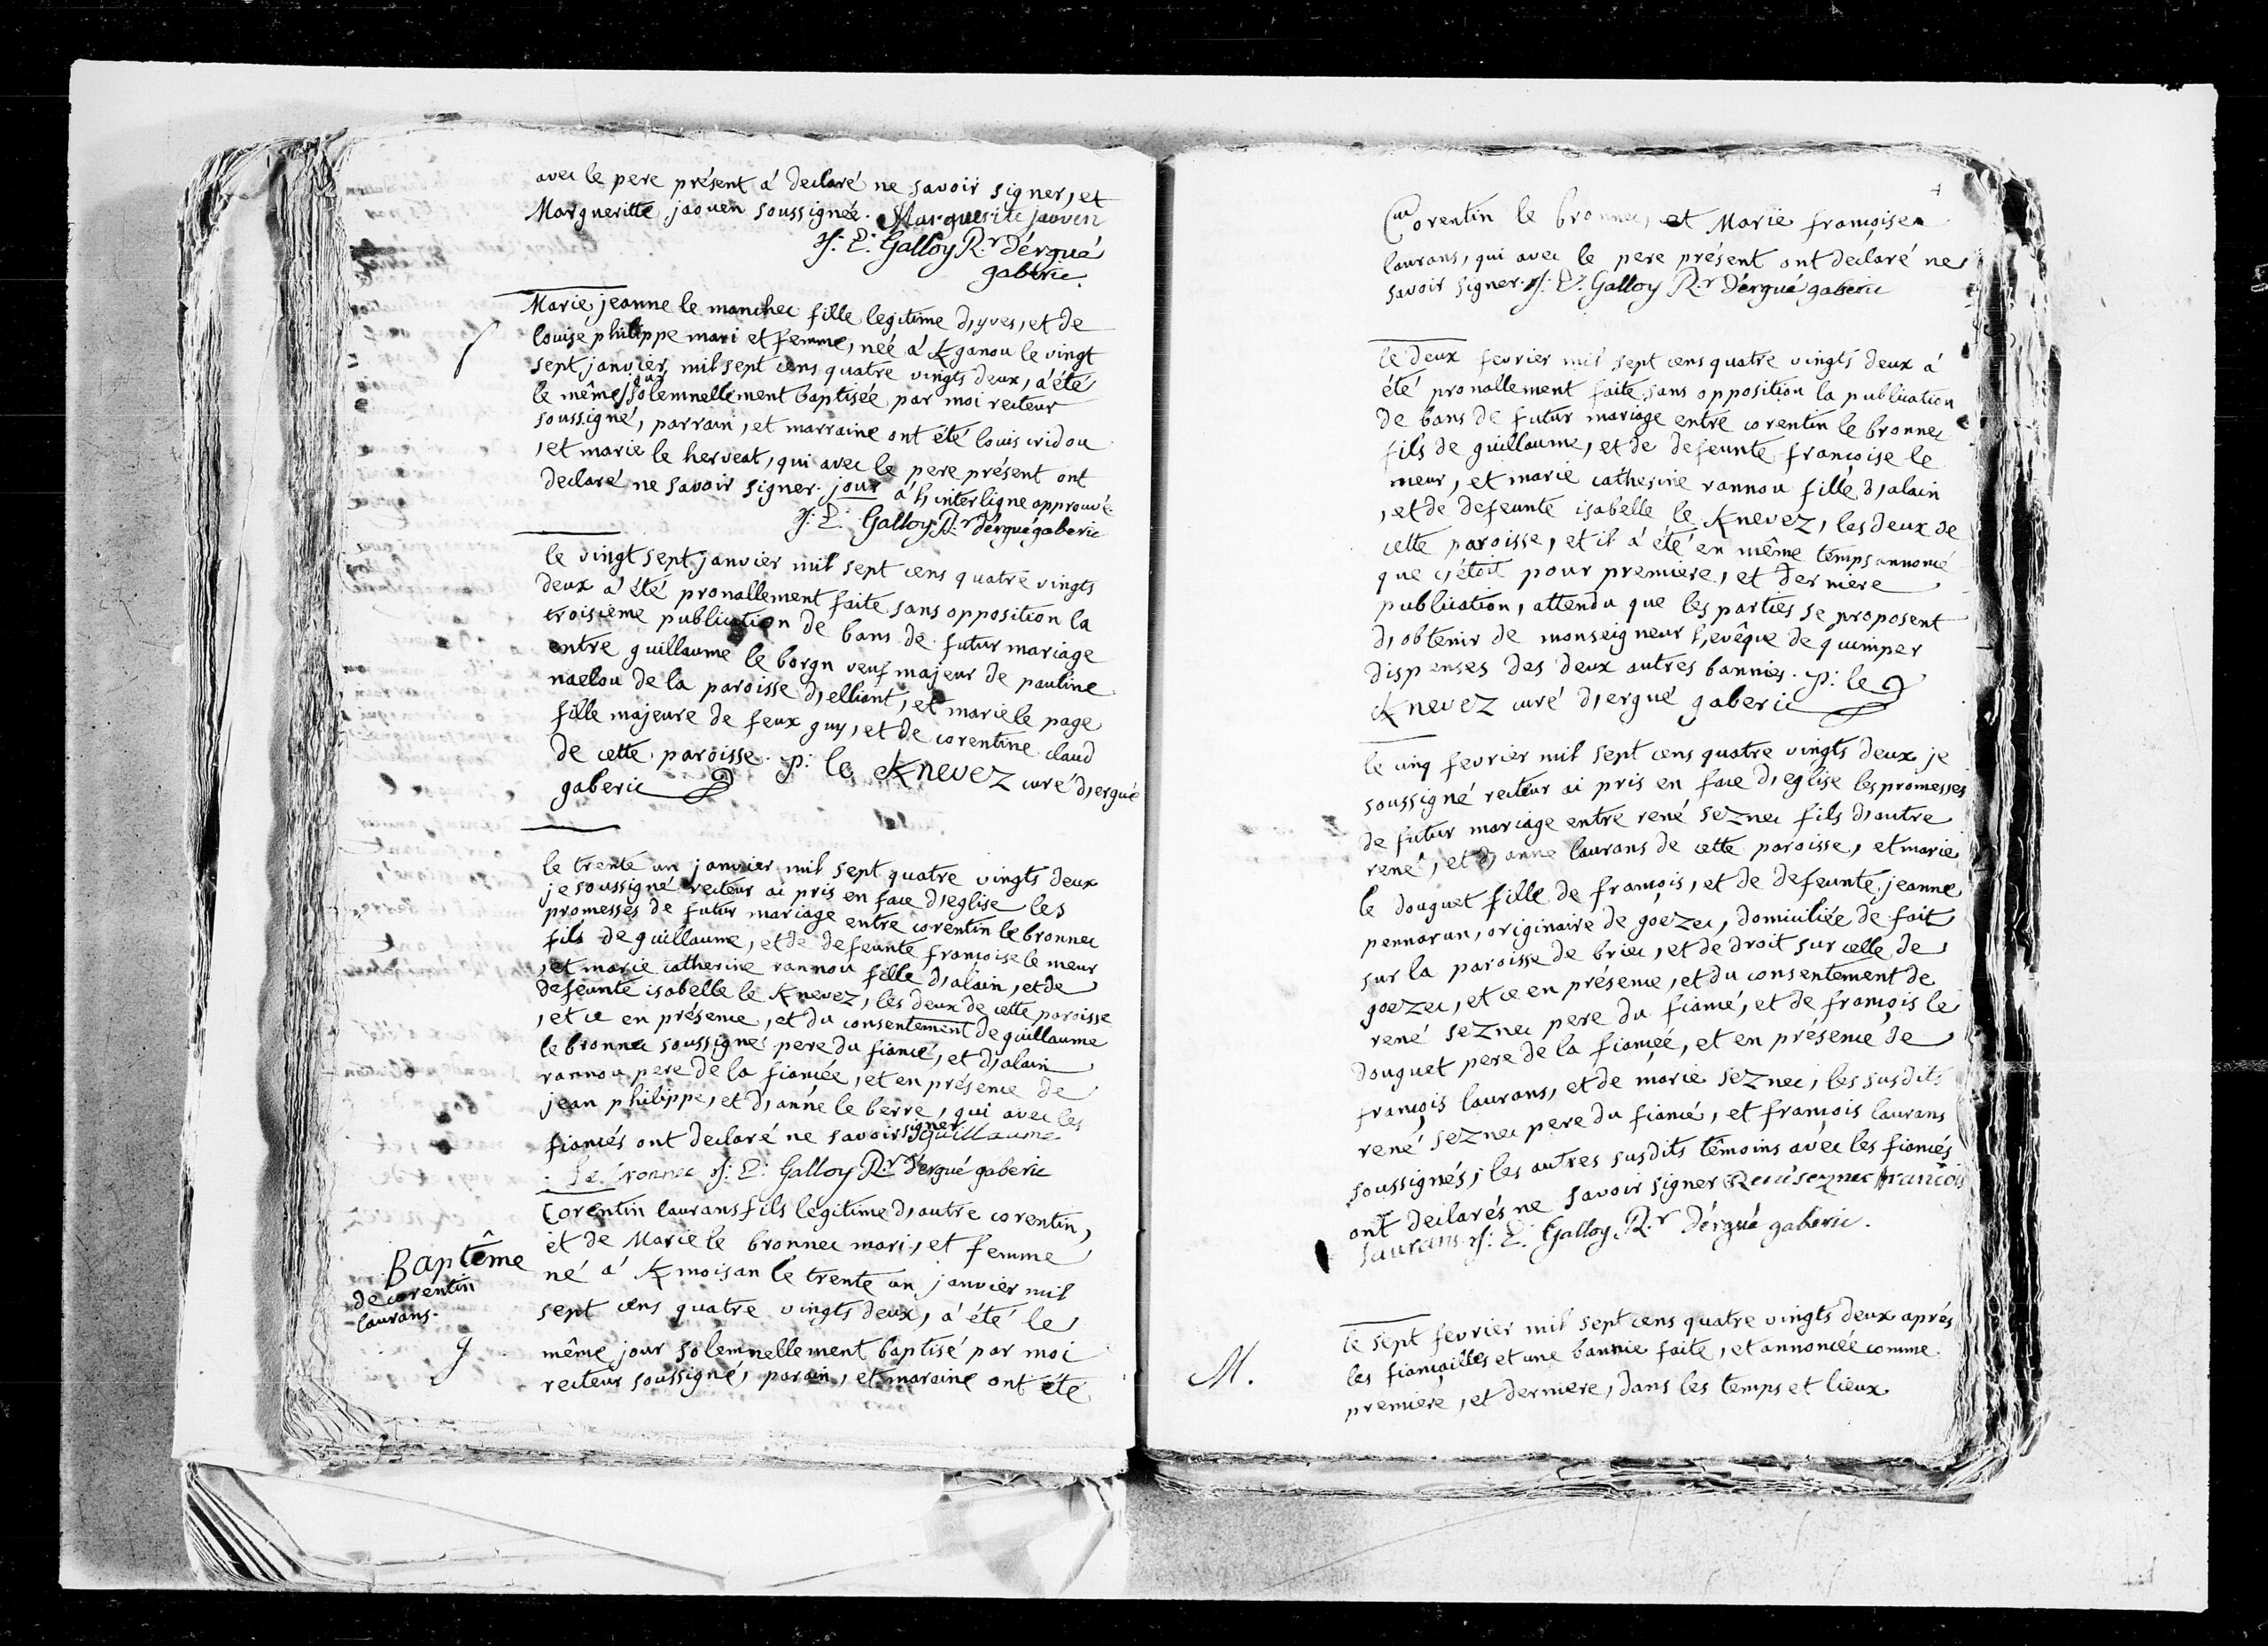 avec le pere présent á declaré ne savoir signer, et
Margueritte jaouen soussignée. Marguerite jaouen
J: L: Galloy R.r d'érgué
gaberic.
Marie jeanne le manchec fille legitime d,yves, et de
louise philippe mari et femme, neé á Kganou le vingt
sept janvier mil sept cens quatre vingts deux, á été
le même jour solemnellement baptisée par moi recteur
soussigné, parrain, et marraine ont été louis cridou
, et marie le herveat, qui avec le pere présent ont
declaré ne savoir signer. jour á l,interligne approuvé
J: L: Galloy R.r d'érgué gaberic
le vingt sept janvier mil sept cens quatre vingts
deux á été pronallement faite sans opposition la
troisieme publication de bans de futur mariage
entre guillaume le borgn veuf majeur de pauline
naelou de la paroisse d,elliant, et marie le page
fille majeure de feux guy, et de corentine claud
de cette paroisse. p: le Knevez curé d,ergué
gaberic
le trente un janvier mil sept quatre vingts deux
je soussigné recteur ai pris en face d,eglise les
promesses de futur mariage entre corentin le bronnec
fils de guillaume, et de defeunte françoise le meur
, et marie catherine rannou fille d,alain, et de
defeunte isabelle le Knevez, les deux de cette paroisse
, et ce en présence, et du consentement de guillaume
le bronnec soussigné pere du fiancé, et d,alain
rannou pere de la fiancée, et en présence de
jean philippe, et d,anne le berre, qui avec les
fiancés ont declaré ne savoir signer guillaume
Le bronnec J: L: Galloy R.r d'ergué gaberic
Baptême
de corentin
laurans.
Corentin laurans fils legitime d,autre corentin,
et de Marie le bronnec mari, et femme
né á Kmoisan le trente un janvier mil
sept cens quatre vingts deux, á été le
même jour solemnellement baptisé par moi
recteur soussigné, parain, et maraine ont été
Corentin le bronnec, et Marie françoise
laurans, qui avec le pere présent ont declaré ne
savoir signer. J: L: Galloy R.r d'érgué gaberic
le deux fevrier mil sept cens quatre vingts deux á
été pronallement faite sans opposition la publication
de bans de futur mariage entre corentin le bronnec
fils de guillaume, et de defeunte françoise le
meur, et marie catherine rannou fille d,alain
, et de defeunte isabelle le Knevez, les deux de
cette paroisse, et il á été en même temps annoncé
que c,étoit pour premiere, et derniere
publication, attendu que les parties se proposent
d,obtenir de monseigneur l,evêque de quimper
dispenses des deux autres bannies. p: le
Knevez curé d,ergué gaberic
le cinq fevrier mil sept cens quatre vingts deux je
soussigné recteur ai pris en face d,eglise les promesses
de futur mariage entre rené seznec fils d,autre
rené, et d,anne laurans de cette paroisse, et marie
le douguet fille de françois, et de defeunte jeanne
pennarun, originaire de goezec, domiciliée de fait
sur la paroisse de briec, et de droit sur celle de
goezec, et ce en présence, et du consentement de
rené seznec pere du fiancé, et de françois le
douguet pere de la fiancéé, et en présence de
françois laurans, et de marie seznec, les susdits
rené seznec pere du fiancé, et françois laurans
soussignés, les autres susdits têmoins avec les fiancés
ont declarés ne savoir signer René seznec francois
laurans J: L: Galloy R.r d'érgué gaberic.
M.
le sept fevrier mil sept cens quatre vingts deux aprés
les fiancailles et une bannie faite, et annoncée comme
premiere, et derniere, dans les temps et lieux